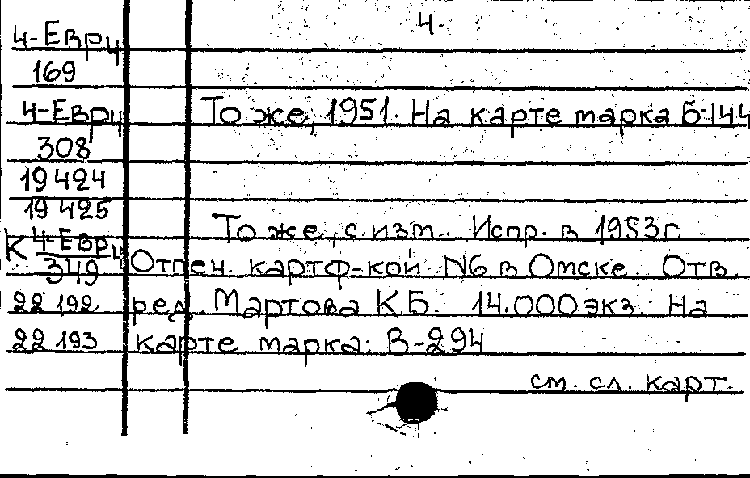 4.
4-Евр4
169
4-Евр4 То же, 1951. На карте марка Б-144
308
19424
19425
То же, с изм. Испр. в 1953г.
К 4-Евр4
349 Отпеч. картф-кой N6 в Омске. Отв.
22192 ред. Мартова К Б. 14.000 экз. На
22193 карте марка: В-294
см. сл. карт.